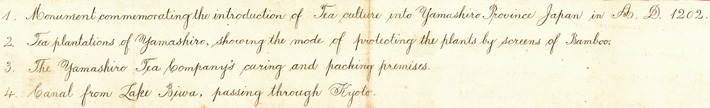 1. Monument commemorating the introduction of Tea culture into Yamashiro Province Japan in A. D. 1202.
2. Tea plantations of Yamashiro, showing the mode of protecting the plants by screens of Bamboo.
3. The Yamashiro Tea Company's curing and packing premises.
4. Canal from Lake Biwa, passing through Kyoto.